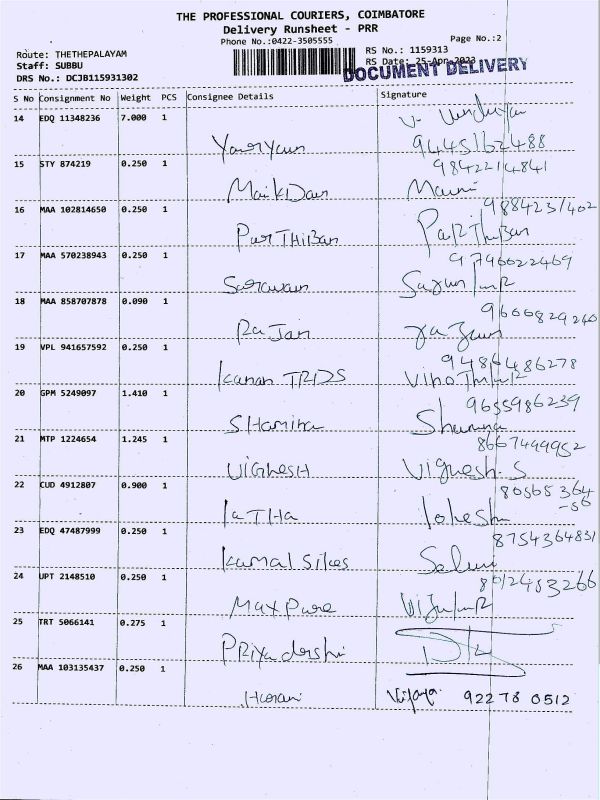 THE PROFESSIONAL COURIERS, COIMBATORE
Delivery Runsheet - PRR
Phone No.:0422-3505555
Page No.:2
Route: THETHEPALAYAM
RS No.: 1159313
Staff: SUBBU
RS Date: 25-Apr-2023
DOCUMENT DELIVERY
DRS No.: DCJB115931302
S No Consignment No Weight PCS Consignee Details Signature
14 EDQ 11348236 7.000 1
9445162488
15 STY 874219 0.250 1 9842214841
Mani
16 MAA 102814650 0.250 1 9884231402
ParTHiBan ParThiBan
17 MAA 570238943 0.250 1 9796022469
Sarawan
18 MAA 858707878 0.090 1 9666829240
RaJan
19 VPL 941657592 0.250 1 9486486278
kanan TRDS
20 GPM 5249097 1.410 1 9655986239
SHamina
21 MTP 1224654 1.245 1 8667499952
ViGhesH Vignesh. S
22 CUD 4912807 0.900 1 80565 364
-56
laTHa lokesh
23 EDQ 47487999 0.250 1 8754364831
kamal Silks
24 UPT 2148510 0.250 1 8012453266
Max Pure
25 TRT 5066141 0.275 1
Priyadarshi
26 MAA 103135437 0.250 1
Vijaya 92278 0512